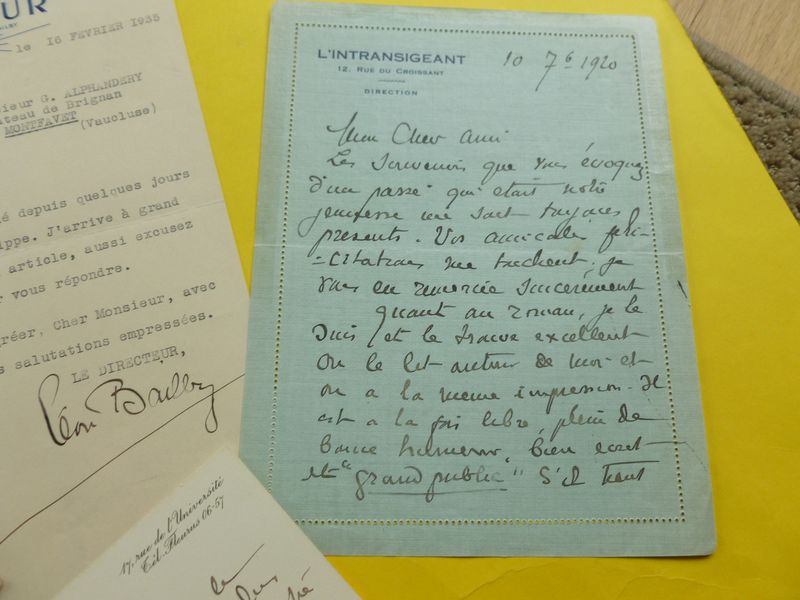 UR
le 16 FEVRIER 1935
sieur G. ALPHANDERY
teau de Brignan
MONTFAVET
(Vaucluse)
é depuis quelques jours
ippe. J'arrive à grand
article, aussi excusez
r vous répondre.
réer, Cher Monsieur, avec
s salutations empressées.
LE DIRECTEUR,
Léon Bailby
17, rue de l'Université
Tél. Fleurus 06-57
L'INTRANSIGEANT
12, RUE DU CROISSANT
DIRECTION
10 7b 1920
Mon Cher Ami
Les souvenirs que vous évoquez
d'un passé qui était notre
jeunesse me sont toujours
présents. Vos amicales féli-
=citations me touchent. je
vous en remercie sincèrement
quant au roman, je le
suis et le trouve excellent
On le lit autour de moi et
on a la même impression. Il
est à la fois libre, plein de
bonne humeur, bien écrit
et "grand public" S'il tient